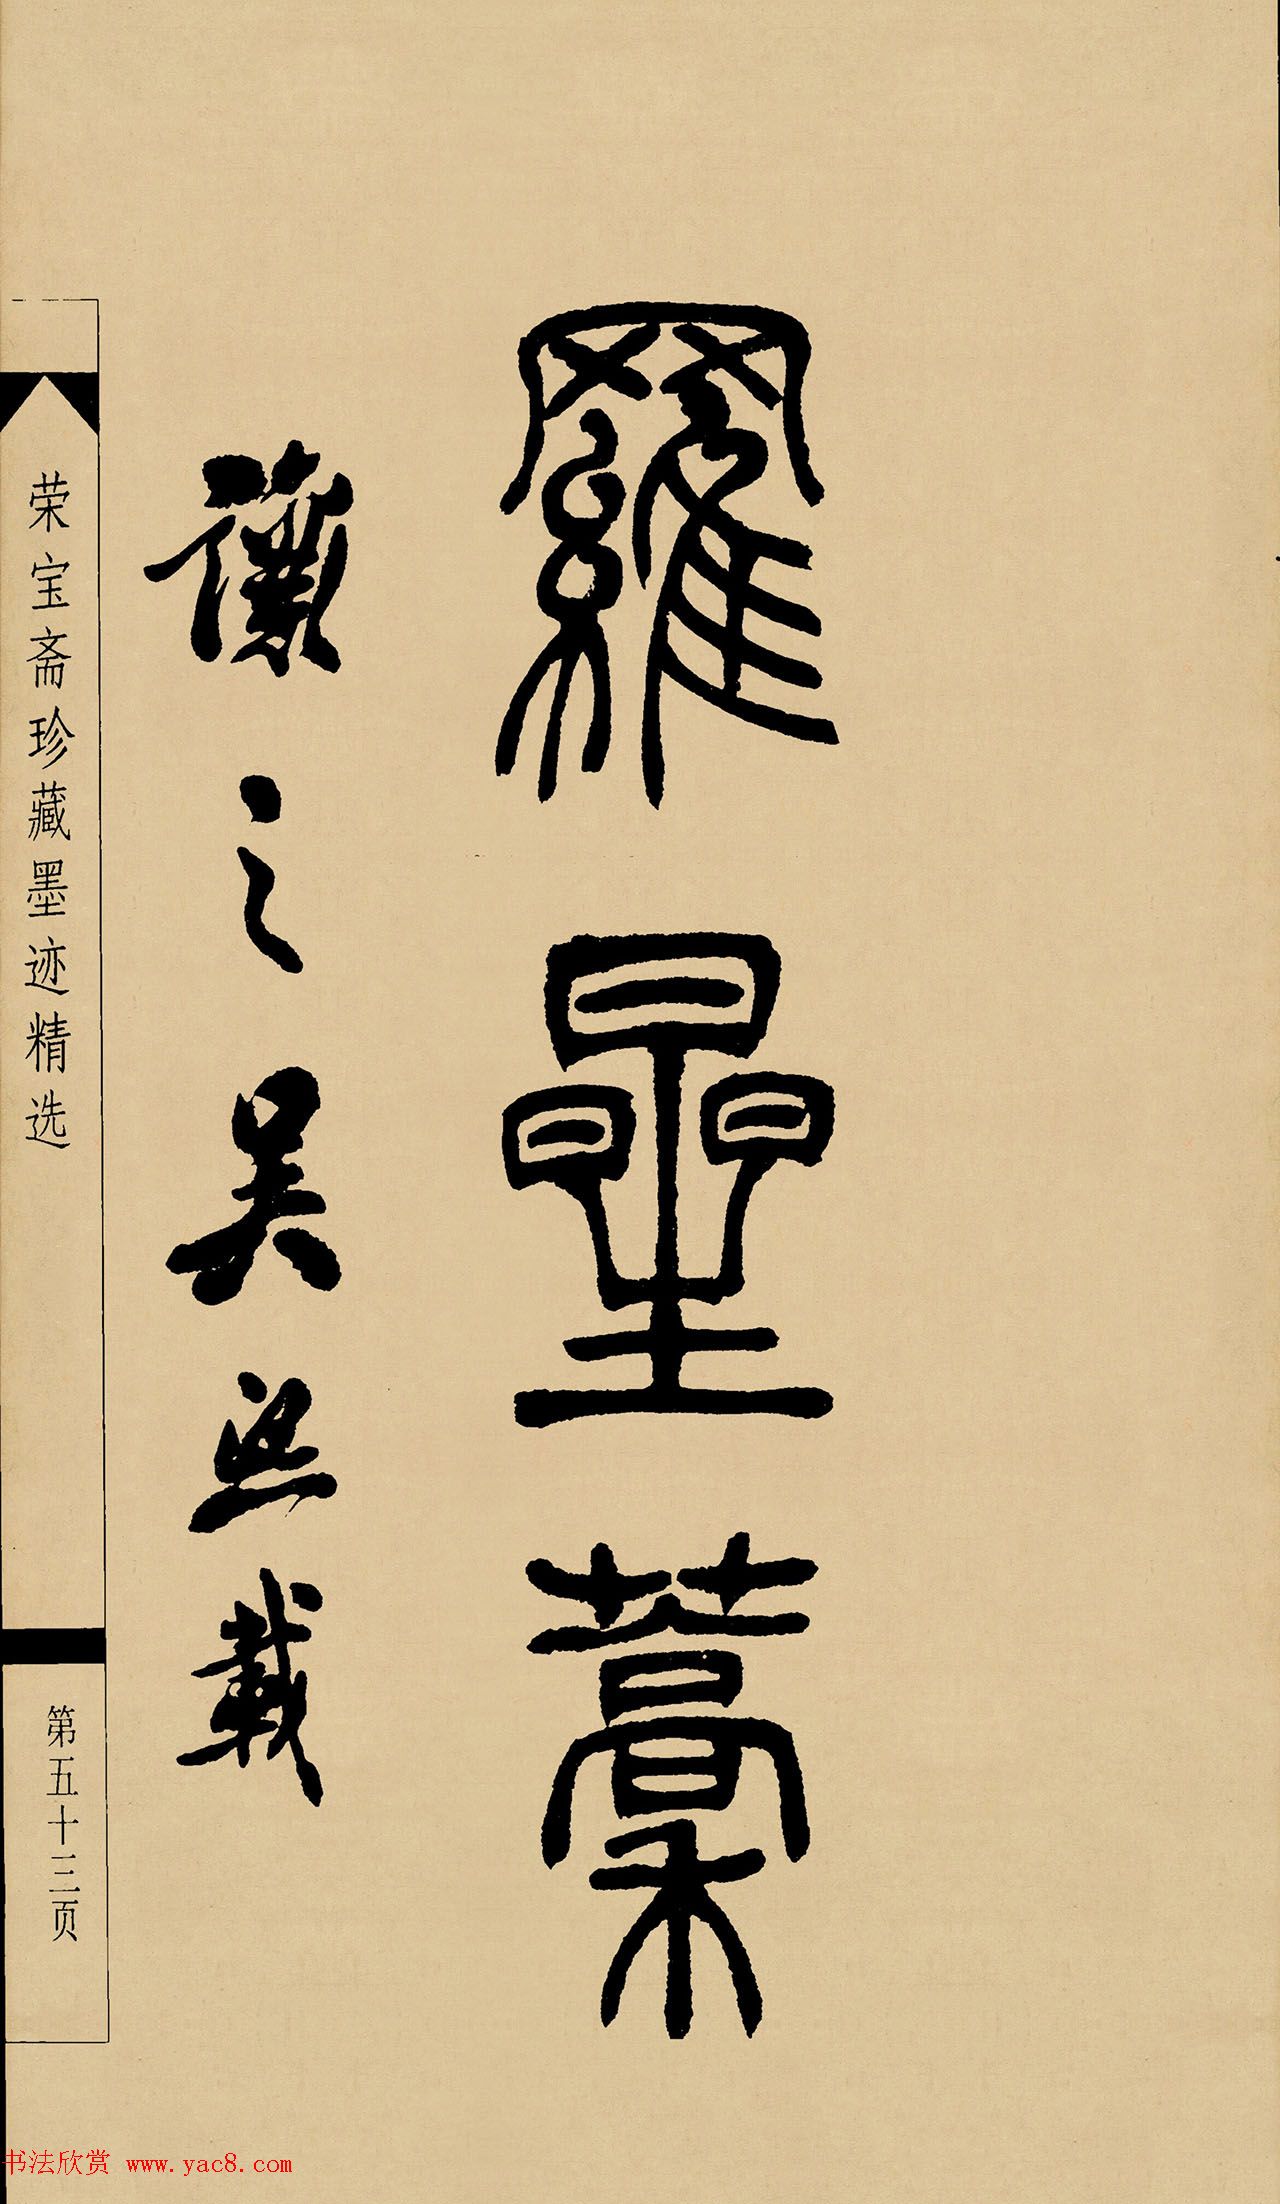 羅星藳
讓之吴熙載
荣宝斋珍藏墨迹精选
第五十三页
书法欣赏 www.yac8.com